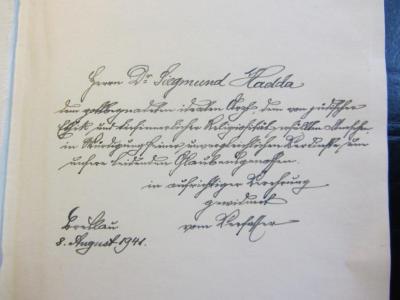 Herrn Dr Siegmund Hadda
dem gottbegnadeten idealen Arzte dem von jüdischer
Ethik und tiefinnerlicher Religiosität erfüllten Menschen
in Würdigung seiner unvergleichlichen Verdienste um
unsere leidenden Glaubensgenossen.
in aufrichtiger Verehrung
gewidmet
vom Verfasser
Breslau
8. August 1941.